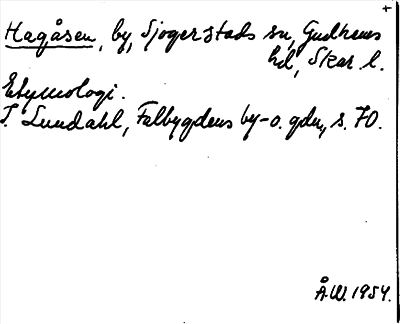 +
Hagåsen, by, Sjogerstads sn, Gudhems
hd, Skar l.
Etymologi.
I. Lundahl, Falbygdens by-o. gdn, s. 70.
Å.W. 1954.